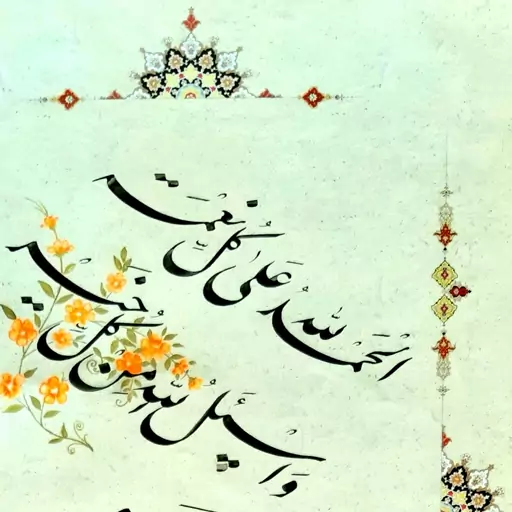 اَلْحَمْدُ للهِ عَلیٰ کُلِّ نِعْمَة
وَ اَسْئَلُ اللهَ مِنْ کُلِّ خَیْر